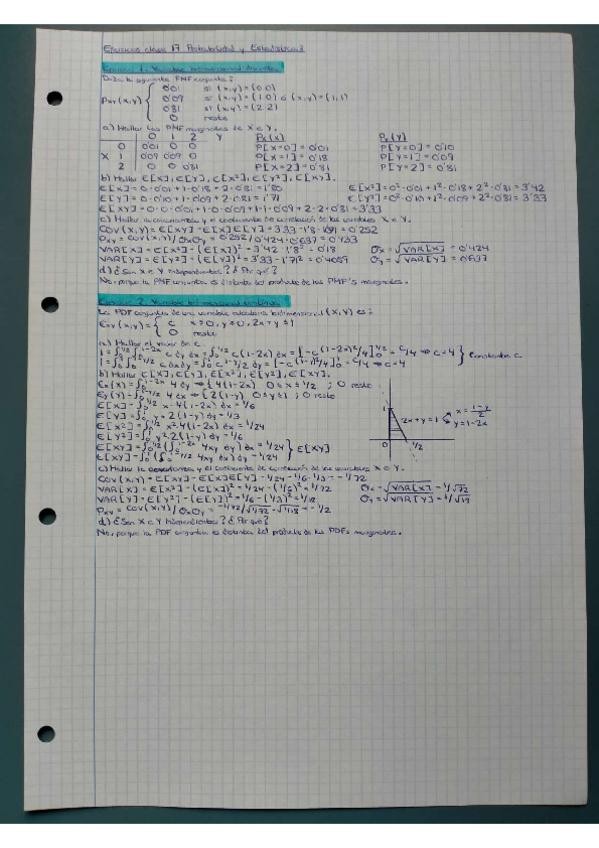 Ejercicios clase 17 Probabilidad y Estadística
Ejercicio 1. Variable bidimensional discreta
Dada la siguiente PMF conjunta:
Pxy(x,y) { 0'01 si (x,y)=(0,0)
0'09 si (x,y)=(1,0) o (x,y)=(1,1)
0'81 si (x,y)=(2,2)
0 resto
a) Hallar las PMF marginales de X e Y.
0 1 2 Y Px(x) Py(y)
0 0'01 0 0 P[X=0]=0'01 P[Y=0]=0'10
X 1 0'09 0'09 0 P[X=1]=0'18 P[Y=1]=0'09
2 0 0 0'81 P[X=2]=0'81 P[Y=2]=0'81
b) Hallar E[X], E[Y], E[X²], E[Y²], E[XY].
E[X]=0·0'01+1·0'18+2·0'81=1'80 E[X²]=0²·0'01+1²·0'18+2²·0'81=3'42
E[Y]=0·0'10+1·0'09+2·0'81=1'71 E[Y²]=0²·0'10+1²·0'09+2²·0'81=3'33
E[XY]=0·0·0'01+1·0·0'09+1·1·0'09+2·2·0'81=3'33
c) Hallar la covarianza y el coeficiente de correlación de las variables X e Y.
COV(X,Y)=E[XY]-E[X]E[Y]=3'33-1'8·1'71=0'252
Pxy=COV(X,Y)/σxσy=0'252/0'424·0'637=0'933
VAR[X]=E[X²]-(E[X])²=3'42-1'8²=0'18 σx=√VAR[X]=0'424
VAR[Y]=E[Y²]-(E[Y])²=3'33-1'71²=0'4059 σy=√VAR[Y]=0'637
d) ¿Son X e Y independientes? ¿Por qué?
No, porque la PMF conjunta es distinta del producto de las PMF's marginales.
Ejercicio 2. Variable bidimensional continua
La PDF conjunta de una variable aleatoria bidimensional (X,Y) es:
fxy(x,y)={ c x≥0, y≥0, 2x+y≤1
0 resto
a) Hallar el valor de c.
1=∫₀^1/2 ∫₀^1-2x c dy dx=∫₀^1/2 c(1-2x) dx=[-c(1-2x)²/4]₀^1/2=c/4 → c=4 } Constante c
1=∫₀^1 ∫₀^1-y/2 c dx dy=∫₀^1 c·1-y/2 dy=[-c(1-y)²/4]₀^1=c/4 → c=4
b) Hallar E[X], E[Y], E[X²], E[Y²], E[XY].
fx(x)=∫₀^1-2x 4 dy → {4(1-2x) 0≤x≤1/2 ; 0 resto
fy(y)=∫₀^1-y/2 4 dx → {2(1-y) 0≤y≤1 ; 0 resto
E[X]=∫₀^1/2 x·4(1-2x) dx=1/6
1 2x+y=1 x=1-y/2
y=1-2x
0 1/2
E[Y]=∫₀^1 y·2(1-y) dy=1/3
E[X²]=∫₀^1/2 x²·4(1-2x) dx=1/24
E[Y²]=∫₀^1 y²·2(1-y) dy=1/6
E[XY]=∫₀^1/2 (∫₀^1-2x 4xy dy) dx=1/24 } E[XY]
E[XY]=∫₀^1 (∫₀^1-y/2 4xy dx) dy=1/24
c) Hallar la covarianza y el coeficiente de correlación de las variables X e Y.
COV(X,Y)=E[XY]-E[X]E[Y]=1/24-1/6·1/3=-1/72
VAR[X]=E[X²]-(E[X])²=1/24-(1/6)²=1/72 σx=√VAR[X]=1/√72
VAR[Y]=E[Y²]-(E[Y])²=1/6-(1/3)²=1/18 σy=√VAR[Y]=1/√18
Pxy=COV(X,Y)/σxσy=-1/72/√1/72·√1/18=-1/2
d) ¿Son X e Y independientes? ¿Por qué?
No, porque la PDF conjunta es distinta del producto de las PDFs marginales.